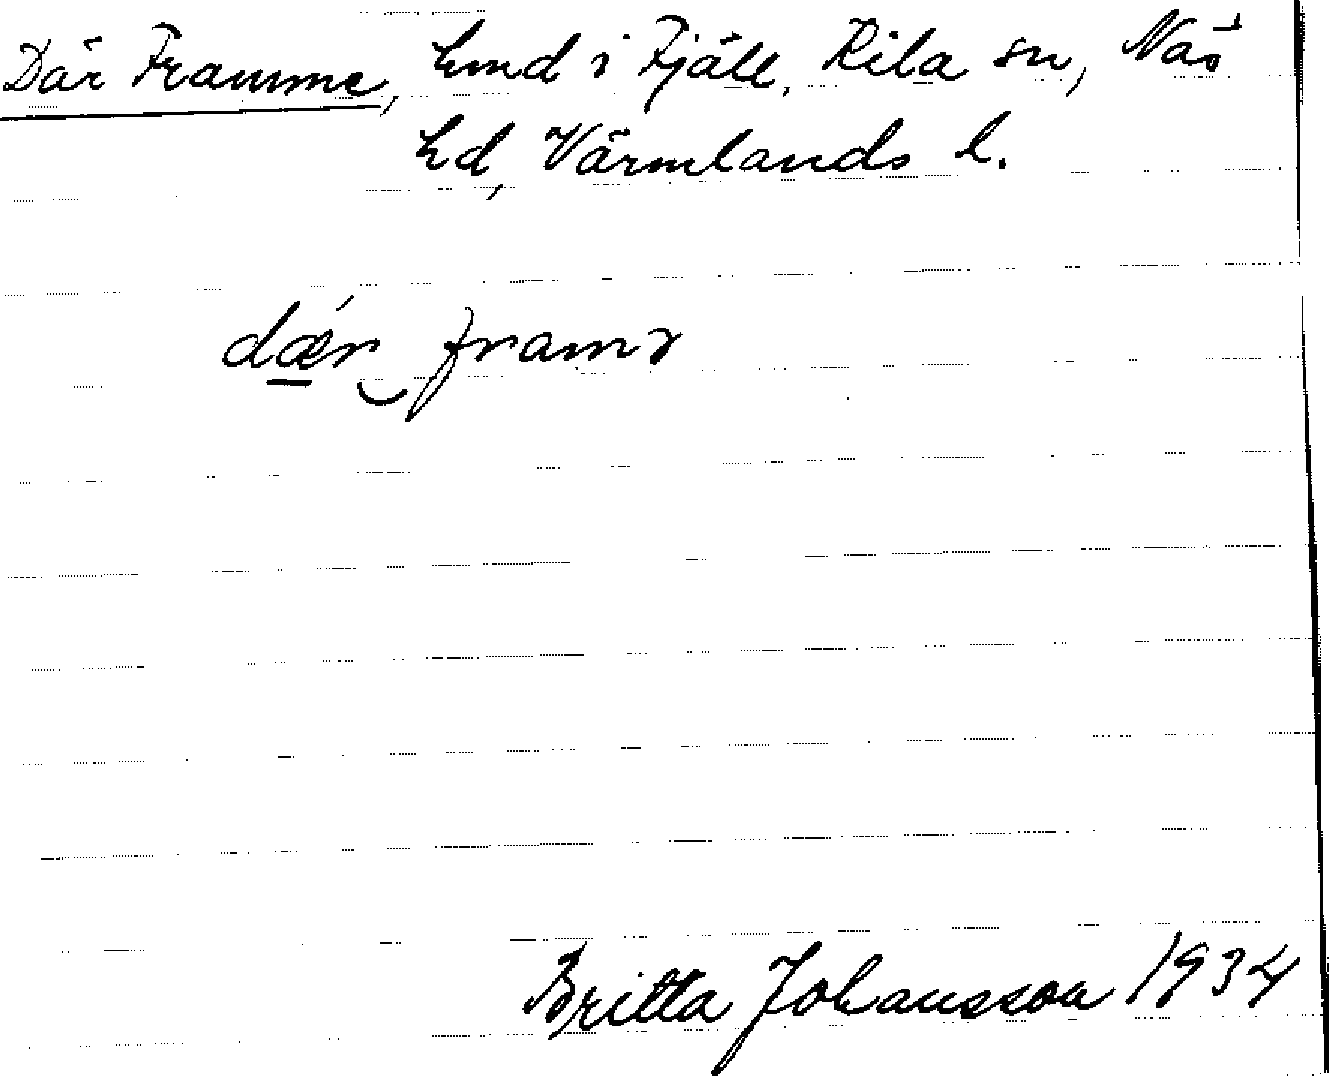 Där Framme, hmd i Fjäll, Kila sn, Näs
hd, Värmlands l.
dǽr framɂ
Britta Johansson 1934